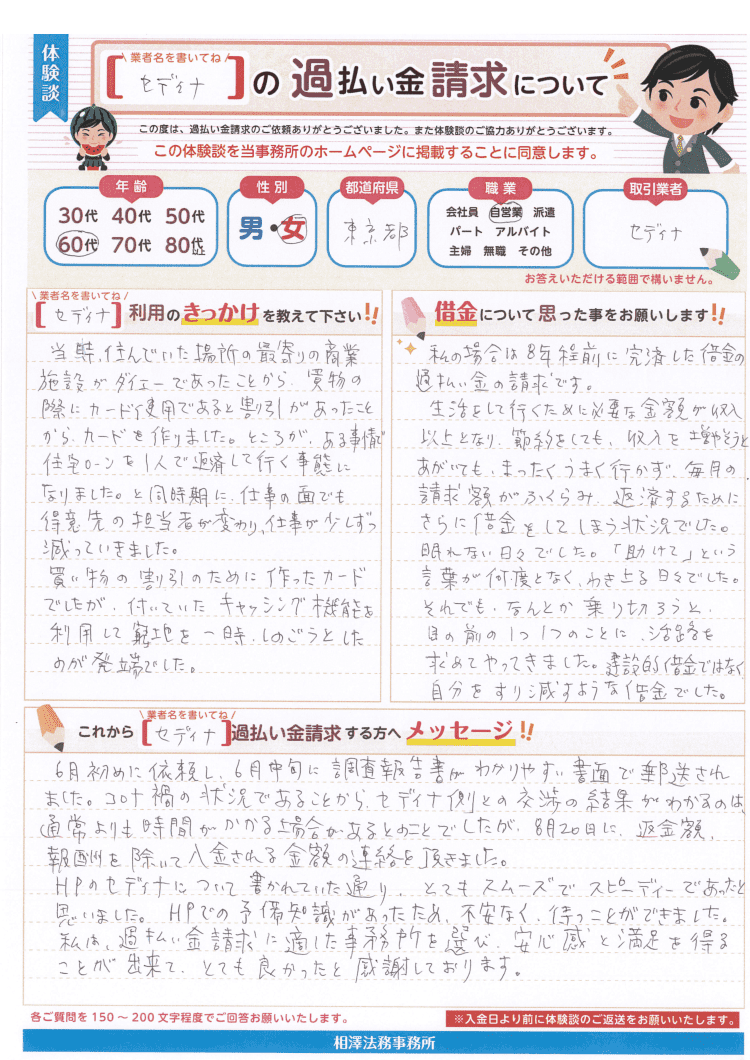 体験談
業者名を書いてね
[セディナ]の過払い金請求について
この度は、過払い金請求のご依頼ありがとうございました。また体験談のご協力ありがとうございます。
この体験談を当事務所のホームページに掲載することに同意します。
年齢
30代 40代 50代
60代 70代 80代以上
性別
男・女
都道府県
東京都
職業
会社員 自営業 派遣
パート アルバイト
主婦 無職 その他
取引業者
セディナ
お答えいただける範囲で構いません。
業者名を書いてね
[セディナ]利用のきっかけを教えて下さい!!
当時、住んでいた場所の最寄りの商業
施設がダイエーであったことから、買物の
際にカード使用であると割引があったこと
から、カードを作りました。ところが、ある事情で
住宅ローンを1人で返済して行く事態に
なりました。と同時期に、仕事の面でも
得意先の担当者が変わり、仕事が少しずつ
減っていきました。
買い物の割引のために作ったカード
でしたが、付いていたキャッシング機能を
利用して窮地を一時、しのごうとした
のが発端でした。
借金について思った事をお願いします!!
私の場合は8年程前に完済した借金の
過払い金の請求です。
生活をして行くために必要な金額が収入
以上となり、節約をしても、収入を増やそうと
あがいても、まったくうまく行かず、毎月の
請求額がふくらみ、返済するために
さらに借金をしてしまう状況でした。
眠れない日々でした。「助けて」という
言葉が何度となく、わき上る日々でした。
それでも、なんとか乗り切ろうと、
目の前の1つ1つのことに、活路を
求めてやってきました。建設的借金ではなく
自分をすり減すような借金でした。
業者名を書いてね
これから[セディナ]過払い金請求する方へメッセージ!!
6月初めに依頼し、6月中旬に調査報告書がわかりやすい書面で郵送され
ました。コロナ禍の状況であることから、セディナ側との交渉の結果がわかるのは、
通常よりも時間がかかる場合があるとのことでしたが、8月20日に、返金額、
報酬を除いて入金される金額の連絡を頂きました。
HPのセディナについて書かれていた通り、とてもスムーズでスピーディーであったと
思いました。HPでの予備知識があったため、不安なく、待つことができました。
私は、過払い金請求に適した事務所を選び、安心感と満足を得る
ことが出来て、とても良かったと感謝しております。
各ご質問を150～200文字程度でご回答お願いいたします。
※入金日より前に体験談のご返送をお願いいたします。
相澤法務事務所